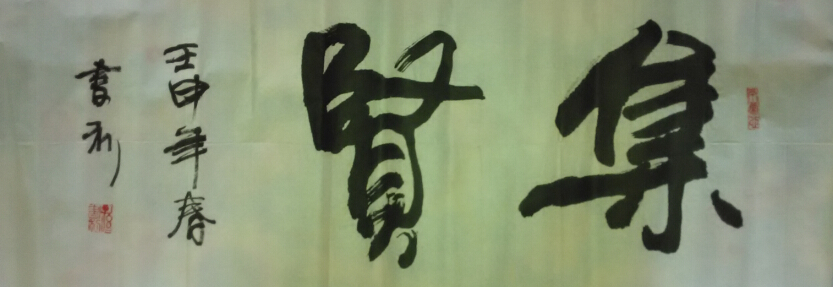 集賢
壬申年春
書利